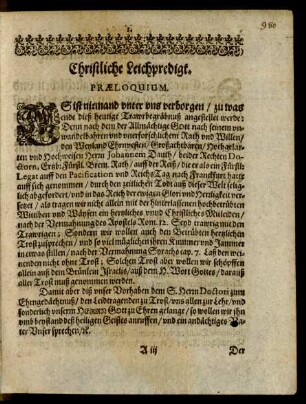 1.
980
Christliche Leichpredigt.
PRÆLOQUIUM.
ES ist niemand unter uns verborgen / zu was
Ende dieß heutige Trawrbegräbnuß angestellet werde:
Denn nach dem der Allmächtige Gott nach seinem un-
wandelbahren und unerforschlichem Rath und Willen /
den Weyland Ehrnvesten / Großachtbaren / Hochgelar-
ten und Hochweisen Herrn Johannem Dauth / beider Rechten Do-
ctorn,
Legat auff den Pacification und ReichsTag nach Franckfurt hatte
auff sich genommen / durch den zeitlichen Todt auß dieser Welt selig-
lich abgefordert / und in das Reich der ewigen Glori und Herligkeit ver-
setzet / also tragen wir nicht allein mit der hinterlassenen hochbetrübten
Witwen und Wäysen ein hertzliches und Christliches Mitleiden /
nach der Vermahnung des Apostels Rom. 12. Seyd trawrig mit den
Trawrigen; Sondern wir wollen auch den Betrübten hertzlichen
Trost zusprechen / und so viel müglichen ihren Kummer und Jammer
in etwas stillen / nach der Vermahnung Syrachs cap. 7. Laß den wei-
nenden nicht ohne Trost; Solchen Trost aber wollen wir schöpffen
allein auß dem Brünlein Israelis / auß dem H. Wort Gottes / darauß
aller Trost muß genommen werden.
Damit aber diß unser Vorhaben dem S. Herrn Doctori zum
Ehrngedächtnuß / den Leidtragenden zu Trost / uns allen zur Lehr / und
sonderlich unserm HERRN GOTT zu Ehren gelange / so wollen wir ihn
umb beystand deß heiligen Geistes anruffen / und ein andächtiges Va-
ter Unser sprechen / ꝛc.
A iij
Der